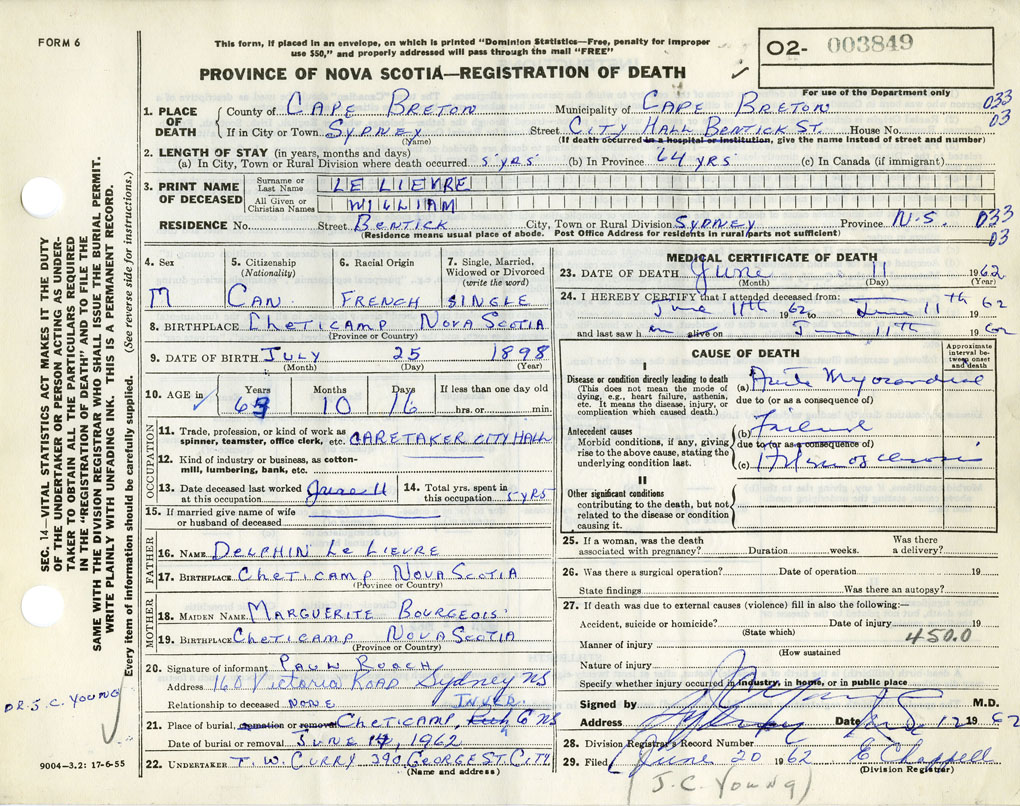 FORM 6
This form, if placed in an envelope, on which is printed "Dominion Statistics—Free, penalty for improper
use $50," and properly addressed will pass through the mail "FREE"
O2- 003849
PROVINCE OF NOVA SCOTIA—REGISTRATION OF DEATH
For use of the Department only
1. PLACE OF DEATH
County of CAPE BRETON Municipality of CAPE BRETON 033
03
If in City or Town SYDNEY Street CITY HALL BENTICK ST. House No.
(Name) (If death occurred in a hospital or institution, give the name instead of street and number)
2. LENGTH OF STAY (in years, months and days)
(a) In City, Town or Rural Division where death occurred 5 YRS (b) In Province 64 YRS (c) In Canada (if immigrant)
3. PRINT NAME OF DECEASED
Surname or Last Name LE LIEVRE
All Given or Christian Names WILLIAM
RESIDENCE No. Street BENTICK City, Town or Rural Division SYDNEY Province N.S. 033
03
(Residence means usual place of abode. Post Office Address for residents in rural parts not sufficient)
4. Sex
M
5. Citizenship
(Nationality)
CAN.
6. Racial Origin
FRENCH
7. Single, Married,
Widowed or Divorced
(write the word)
SINGLE
8. BIRTHPLACE CHETICAMP NOVA SCOTIA
(Province or Country)
9. DATE OF BIRTH JULY 25 1898
(Month) (Day) (Year)
10. AGE in
Years Months Days If less than one day old
63 10 16 hrs. or min.
OCCUPATION
11. Trade, profession, or kind of work as
spinner, teamster, office clerk, etc. CARETAKER CITY HALL
12. Kind of industry or business, as cotton-
mill, lumbering, bank, etc.
13. Date deceased last worked
at this occupation June 11
14. Total yrs. spent in
this occupation 5 YRS
15. If married give name of wife
or husband of deceased
FATHER
16. NAME DELPHIN LE LIEVRE
17. BIRTHPLACE CHETICAMP NOVA SCOTIA
(Province or Country)
MOTHER
18. MAIDEN NAME MARGUERITE BOURGEOIS
19. BIRTHPLACE CHETICAMP NOVA SCOTIA
(Province or Country)
20. Signature of informant PAUL ROACH
Address 160 Victoria Road Sydney NS
Relationship to deceased NONE
21. Place of burial, cremation or removal CHETICAMP, NS
Date of burial or removal JUNE 14, 1962
22. UNDERTAKER T. W. CURRY 290 GEORGE ST. CITY
(Name and address)
MEDICAL CERTIFICATE OF DEATH
23. DATE OF DEATH June 11 1962
(Month) (Day) (Year)
24. I HEREBY CERTIFY that I attended deceased from:
June 11th 1962 to June 11th 1962
and last saw h alive on June 11th 1962
CAUSE OF DEATH
Approximate
interval be-
tween onset
and death
I
Disease or condition directly leading to death
(This does not mean the mode of
dying, e.g., heart failure, asthenia,
etc. It means the disease, injury, or
complication which caused death.)
(a) Acute Myocardial
due to (or as a consequence of)
Antecedent causes
Morbid conditions, if any, giving
rise to the above cause, stating the
underlying condition last.
(b) Failure
due to (or as a consequence of)
(c)
II
Other significant conditions
contributing to the death, but not
related to the disease or condition
causing it.
25. If a woman, was the death
associated with pregnancy? Duration weeks.
Was there
a delivery?
26. Was there a surgical operation? Date of operation 19
State findings Was there an autopsy?
27. If death was due to external causes (violence) fill in also the following:—
Accident, suicide or homicide? Date of injury 19
(State which)
450.0
Manner of injury
(How sustained
Nature of injury
Specify whether injury occurred in industry, in home, or in public place
Signed by M.D.
Address Date 12 1962
28. Division Registrar's Record Number
29. Filed June 20 1962 E Chappell
(Division Registrar)
(J.C. Young)
SEC. 14—VITAL STATISTICS ACT MAKES IT THE DUTY
OF THE UNDERTAKER OR PERSON ACTING AS UNDER-
TAKER TO OBTAIN ALL THE PARTICULARS REQUIRED
IN THE "REGISTRATION OF DEATH" AND TO FILE THE
SAME WITH THE DIVISION REGISTRAR WHO SHALL ISSUE THE BURIAL PERMIT.
WRITE PLAINLY WITH UNFADING INK. THIS IS A PERMANENT RECORD.
Every item of information should be carefully supplied. (See reverse side for instructions.)
DR. J. C. YOUNG
9004-3.2: 17-6-55